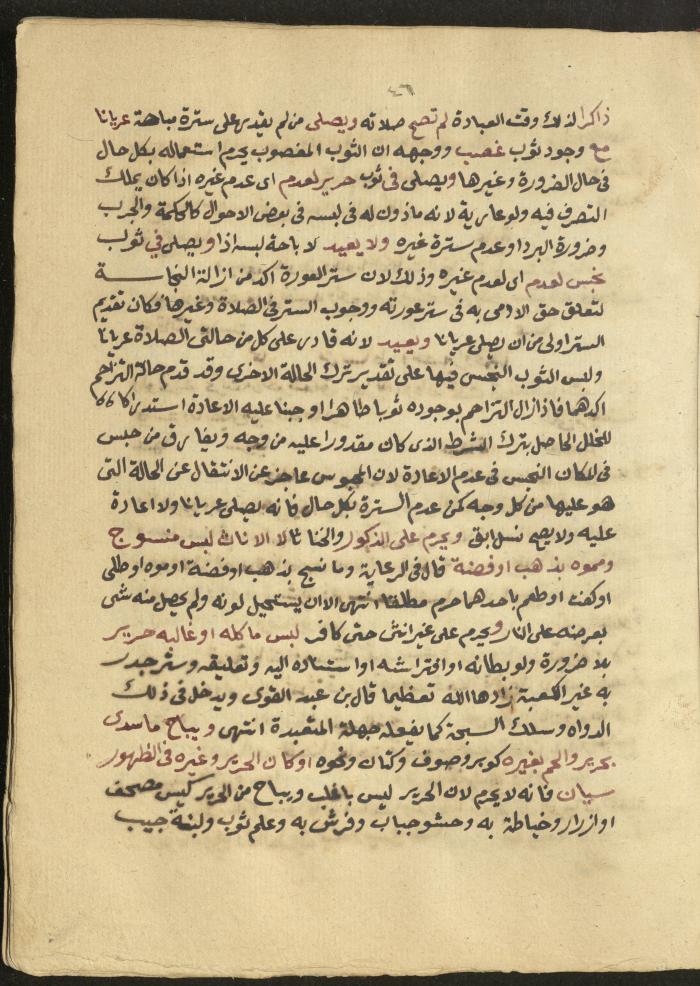 ٤٦
ذاكرا لذلك وقت العبادة لم تصح صلاته ويصلى من لم يقدر على سترة مباحة عريانا
مع وجود ثوب غصب ووجهه ان الثوب المغصوب يحرم استعماله بكل حال
فى حال الضرورة وغيرها ويصلى فى ثوب حرير لعدم اى عدم غيره اذا كان يملك
التصرف فيه ولو عارية لانه ماذون له فى لبسه فى بعض الاحوال كالحكة والجرب
وضرورة البرد او عدم سترة غيره ولا يعيد لاباحة لبسه اذا ويصلى في ثوب
نجس لعدم اى لعدم غيره وذلك لان ستر العورة اكد من ازالة النجاسة
لتعلق حق الادمى به فى ستر عورته ووجوب الستر فى الصلاة وغيرها فكان تقديم
الستر اولى من ان يصلى عريانا ويعيد لانه قادر على كل من حالتى الصلاة عريانا
ولبس الثوب النجس فيها على تقدير ترك الحالة الاخرى وقد قدم حالة التزاحم
اكدهما فاذا زال التزاحم بوجوده ثوبا طاهرا وجبنا عليه الاعادة استدراكا
للخلل الحاصل بترك الشرط الذى كان مقدورا عليه من وجه ويفارق من حبس
فى المكان النجس فى عدم الاعادة لان المحبوس عاجز عن الانتقال عن الحالة التى
هو عليها من كل وجه كمن عدم السترة بكل حال فانه يصلى عريانا ولا اعادة
عليه ولا يصح نفل ابق ويحرم على الذكور والخناثا لا الاناث لبس منسوج
ومموه بذهب او فضة قال فى الرعاية وما نسج بذهب او فضة او موه او طلى
او كفت او طعم باحدهما حرم مطلقا انتهى الا ان يستحيل لونه ولم يحصل منه شى
بعرضه على النار ويحرم على غير انثى حتى كافر لبس ما كله او غالبه حرير
بلا ضرورة ولو بطانه او افتراشه او استناده اليه وتعليقه وستر جدر
به غير الكعبة زادها الله تعظيما قال بن عبد القوى ويدخل فى ذلك
الدواه وسلك السبحة كما يفعله جهلة المتعبدة انتهى ويباح ما سدى
بحرير والحم بغيره كوبر وصوف وكتان ونحوه او كان الحرير وغيره فى الظهور
سيان فانه لا يحرم لان الحرير ليس باغلب ويباح من الحرير كيس مصحف
او ازرار وخياطة به وحشو جباب وفرش به وعلم ثوب ولبنة جيب